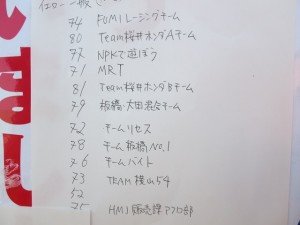 74 FUMIレーシングチーム
80 Team桜井ホンダAチーム
77 NPKで遊ぼう
71 MRT
81 Team桜井ホンダBチーム
79 板橋・大田混合チーム
72 チームリセス
78 チーム板橋No.1
76 チームバイト
73 TEAM横山54
52
75 HMJ